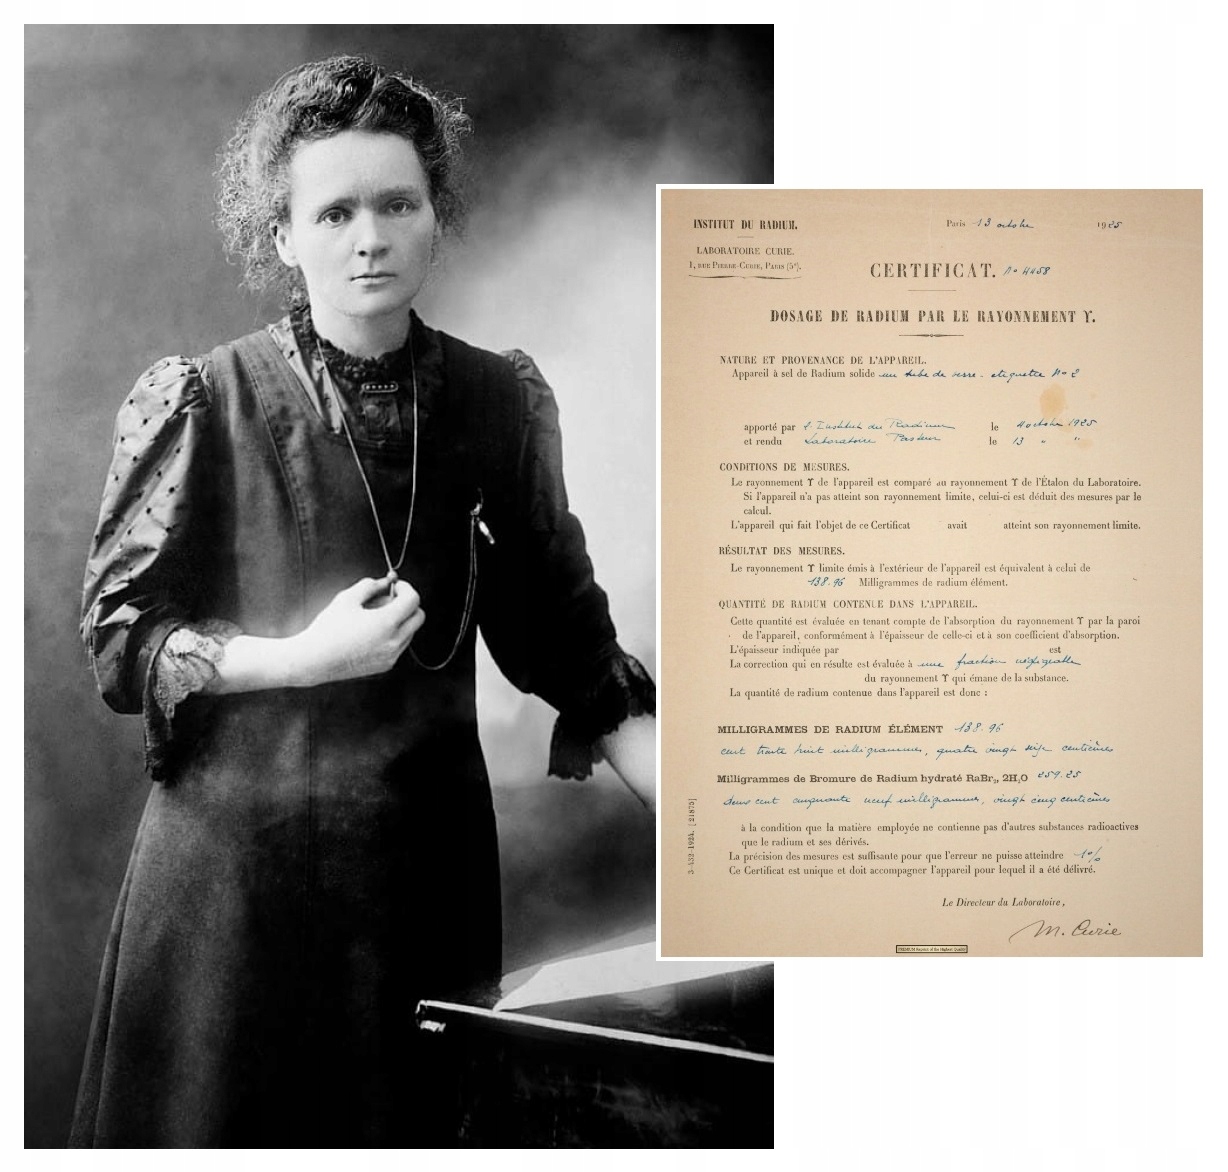 INSTITUT DU RADIUM.
Paris 13 octobre 1925
LABORATOIRE CURIE.
1, RUE PIERRE-CURIE, PARIS (5e).
CERTIFICAT. No 4458
DOSAGE DE RADIUM PAR LE RAYONNEMENT ϒ.
NATURE ET PROVENANCE DE L'APPAREIL.
Appareil à sel de Radium solide un tube de verre - etiquette No 2
apporté par l'Institut du Radium le 4 octobre 1925
et rendu Laboratoire Pasteur le 13 " "
CONDITIONS DE MESURES.
Le rayonnement ϒ de l'appareil est comparé au rayonnement ϒ de l'Étalon du Laboratoire.
Si l'appareil n'a pas atteint son rayonnement limite, celui-ci est déduit des mesures par le
calcul.
L'appareil qui fait l'objet de ce Certificat avait atteint son rayonnement limite.
RÉSULTAT DES MESURES.
Le rayonnement ϒ limite émis à l'extérieur de l'appareil est équivalent à celui de
138.96 Milligrammes de radium élément.
QUANTITÉ DE RADIUM CONTENUE DANS L'APPAREIL.
Cette quantité est évaluée en tenant compte de l'absorption du rayonnement ϒ par la paroi
de l'appareil, conformément à l'épaisseur de celle-ci et à son coefficient d'absorption.
L'épaisseur indiquée par est
La correction qui en résulte est évaluée à une fraction négligeable
du rayonnement ϒ qui émane de la substance.
La quantité de radium contenue dans l'appareil est donc :
MILLIGRAMMES DE RADIUM ÉLÉMENT 138.96
cent trente huit milligrammes, quatre vingt seize centièmes
Milligrammes de Bromure de Radium hydraté RaBr₂, 2H₂O 259.25
deux cent cinquante neuf milligrammes, vingt cinq centièmes
à la condition que la matière employée ne contienne pas d'autres substances radioactives
que le radium et ses dérivés.
La précision des mesures est suffisante pour que l'erreur ne puisse atteindre 1%
Ce Certificat est unique et doit accompagner l'appareil pour lequel il a été délivré.
3-432-1924. [21875]
Le Directeur du Laboratoire,
M. Curie
PREMIUM Reprint of the Highest Quality